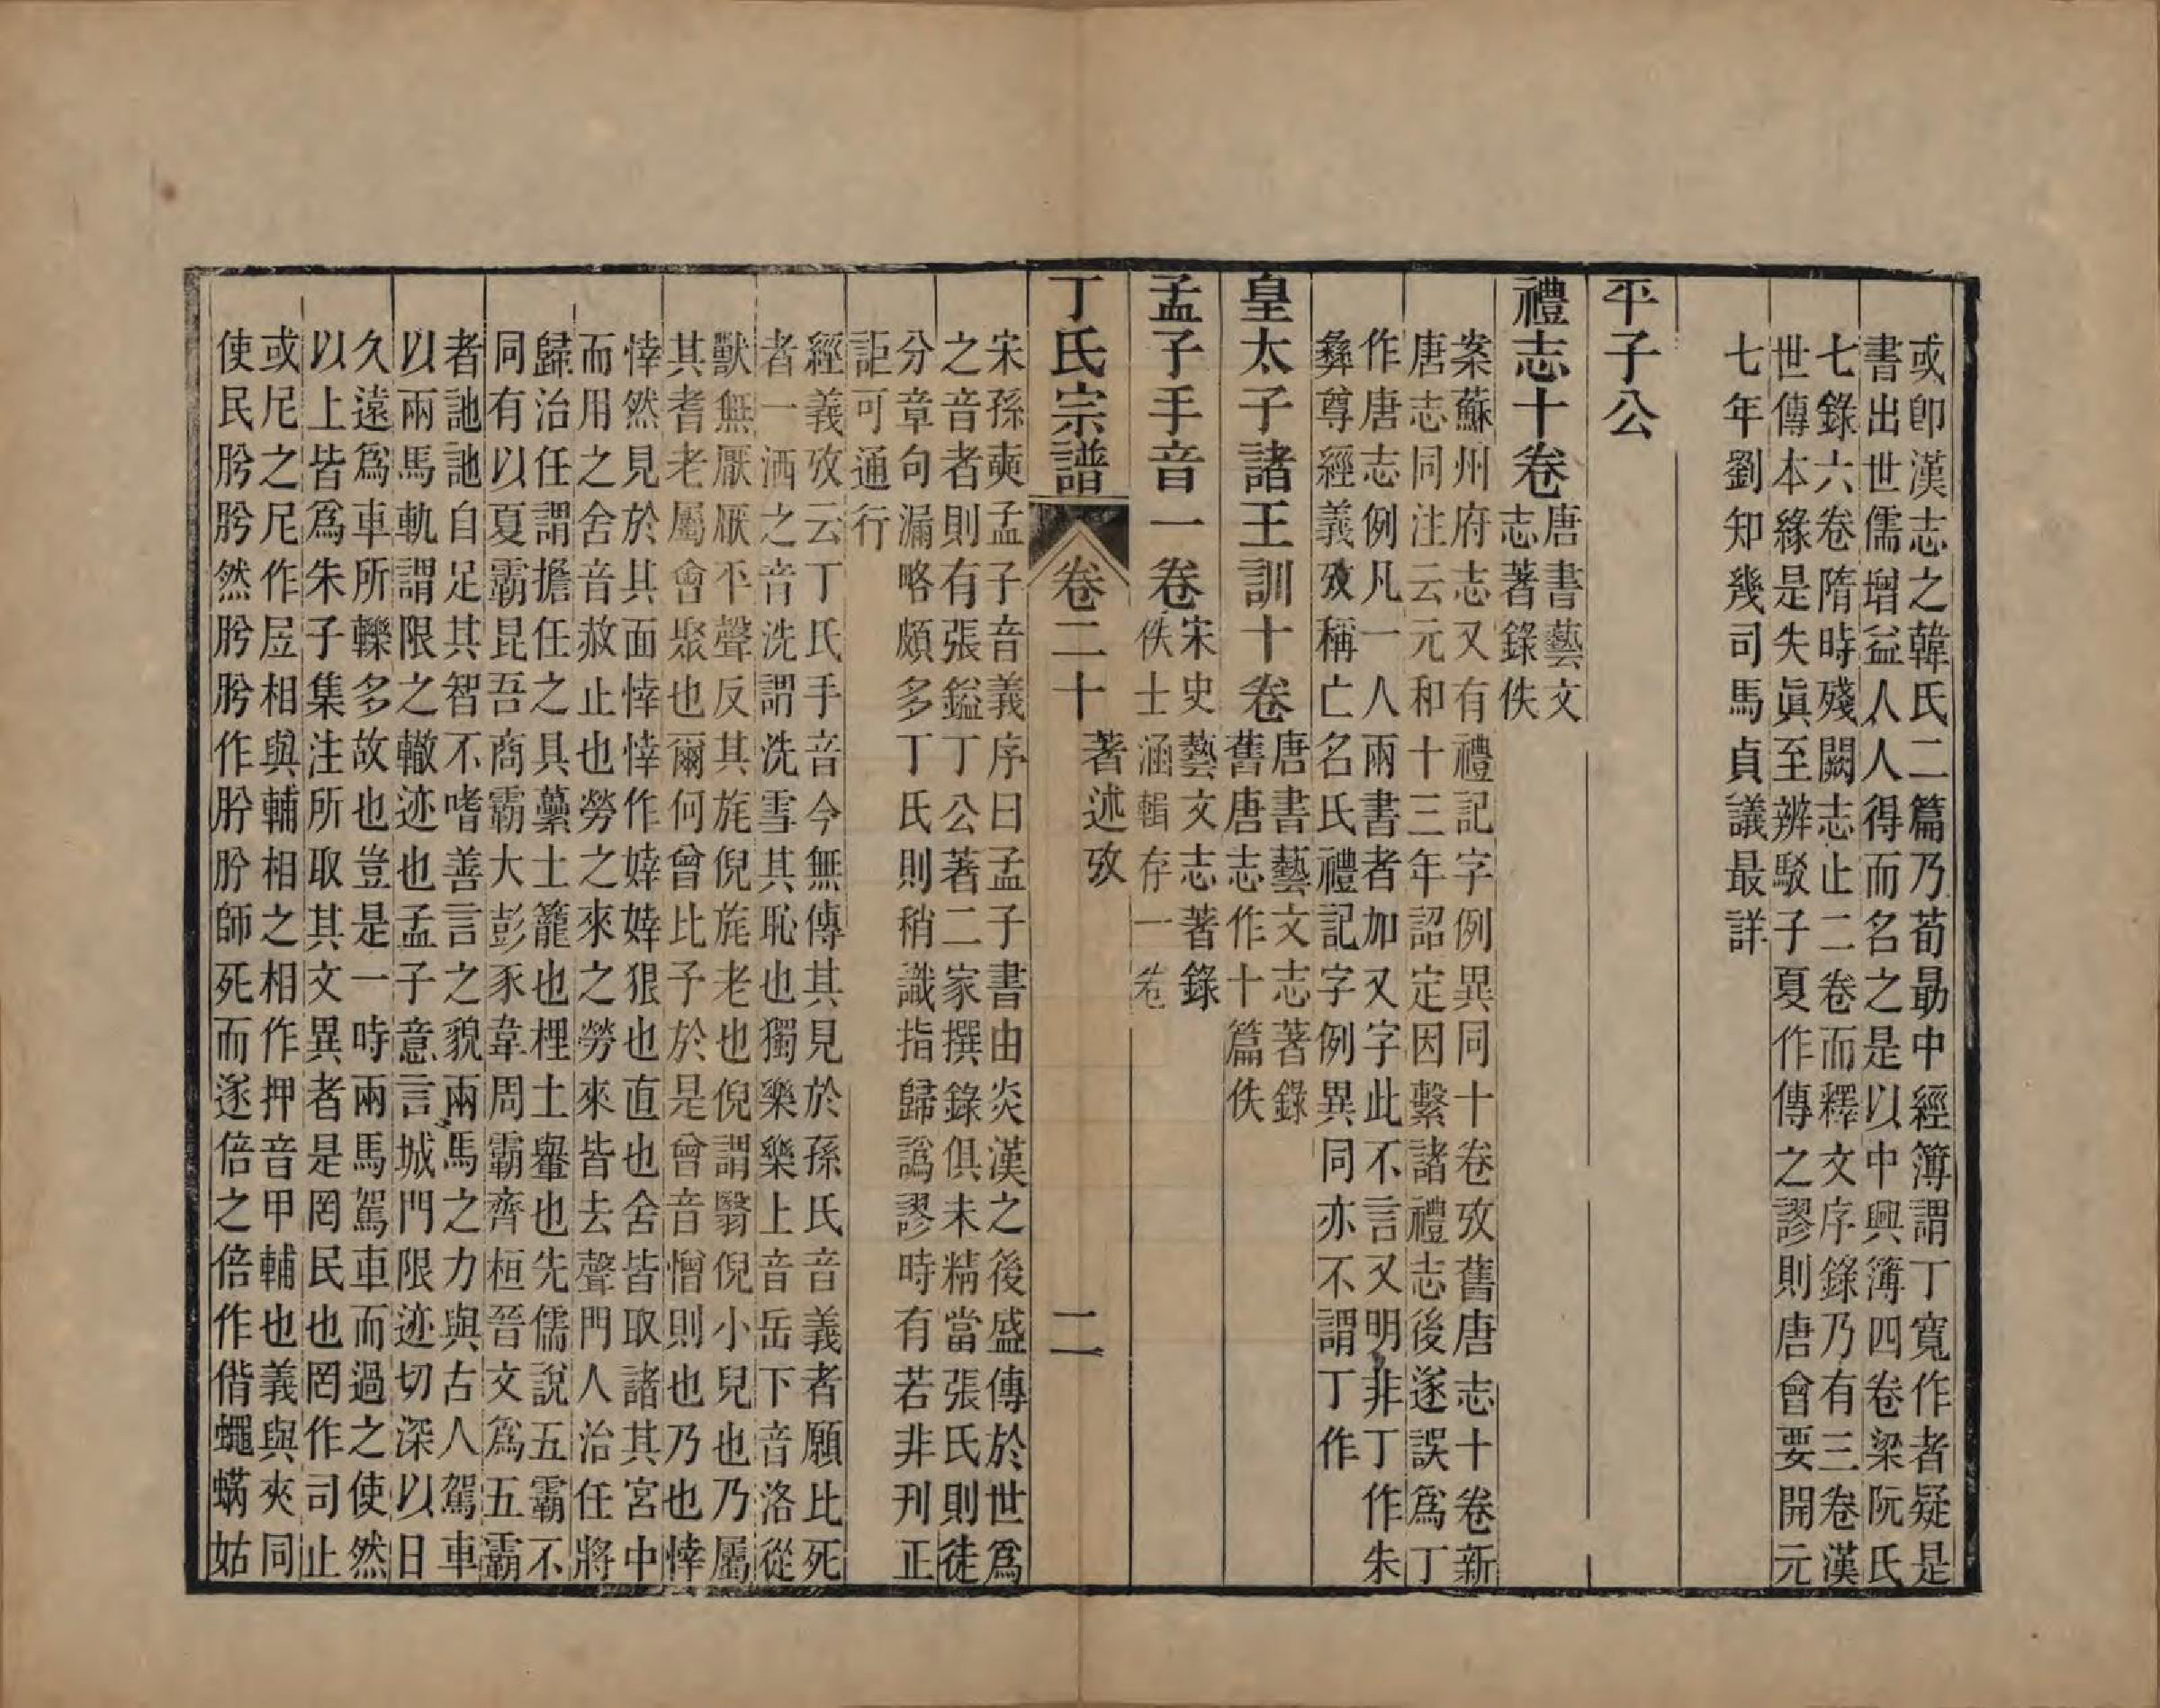 或卽漢志之韓氏二篇乃荀勗中經簿謂丁寬作者疑是
書出世儒增益人人得而名之是以中興簿四卷梁阮氏
七錄六卷隋時殘闕志止二卷而釋文序錄乃有三卷漢
世傳本緣是失眞至辨駁子夏作傳之謬則唐會要開元
七年劉知幾司馬貞議最詳
平子公
禮志十卷
唐書藝文
志著錄佚
案蘇州府志又有禮記字例異同十卷攷舊唐志十卷新
唐志同注云元和十三年詔定因繫諸禮志後遂誤爲丁
作唐志例凡一人兩書者加又字此不言又明非丁作朱
彝尊經義攷稱亡名氏禮記字例異同亦不謂丁作
皇太子諸王訓十卷
唐書藝文志著錄
舊唐志作十篇佚
孟子手音一卷
宋史藝文志著錄
佚士涵輯存一卷
丁氏宗譜 卷二十 著述攷 二
宋孫奭孟子音義序曰孟子書由炎漢之後盛傳於世爲
之音者則有張鎰丁公著二家撰錄俱未精當張氏則徒
分章句漏略頗多丁氏則稍識指歸譌謬時有若非刊正
詎可通行
經義攷云丁氏手音今無傳其見於孫氏音義者願比死
者一洒之音洗謂洗雪其恥也獨樂樂上音岳下音洛從
獸無厭厭平聲反其旄倪旄老也倪謂繄倪小兒也乃屬
其耆老屬會聚也爾何曾比予於是曾音憎則也乃也悻
悻然見於其面悻悻作婞婞狠也直也舍皆取諸其宮中
而用之舍音赦止也勞之來之勞來皆去聲門人治任將
歸治任謂擔任之具虆土籠也梩土轝也先儒說五霸不
同有以夏霸昆吾商霸大彭豕韋周霸齊桓晉文爲五霸
者訑訑自足其智不嗜善言之貌兩馬之力與古人駕車
以兩馬軌謂限之轍迹也孟子意言城門限迹切深以日
久遠爲車所轢多故也豈是一時兩馬駕車而過之使然
以上皆爲朱子集注所取其文異者是罔民也罔作司止
或尼之尼作𡰥相與輔相之相作押音甲輔也義與夾同
使民肹肹然肹肹作肸肸師死而遂倍之倍作偝蠅蜹姑